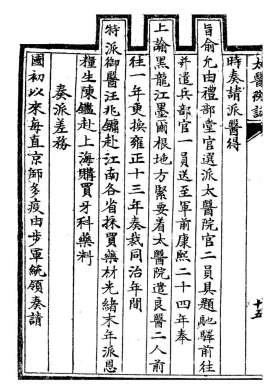 太醫院志
十五
時奏請派醫得
旨俞允由禮部堂官選派太醫院官二員具題馳驛前往
并遣兵部官一員送至軍前康熙二十四年奉
上諭黑龍江墨爾根地方緊要着太醫院遣良醫二人前
往一年更換雍正十三年奏裁同治年間
特派御醫汪兆鏞赴江南各省採買藥材光緒末年派恩
糧生陳鑑赴上海購買牙科藥料
奏派差務
國初以來每直京師多疫由步軍統領奏請